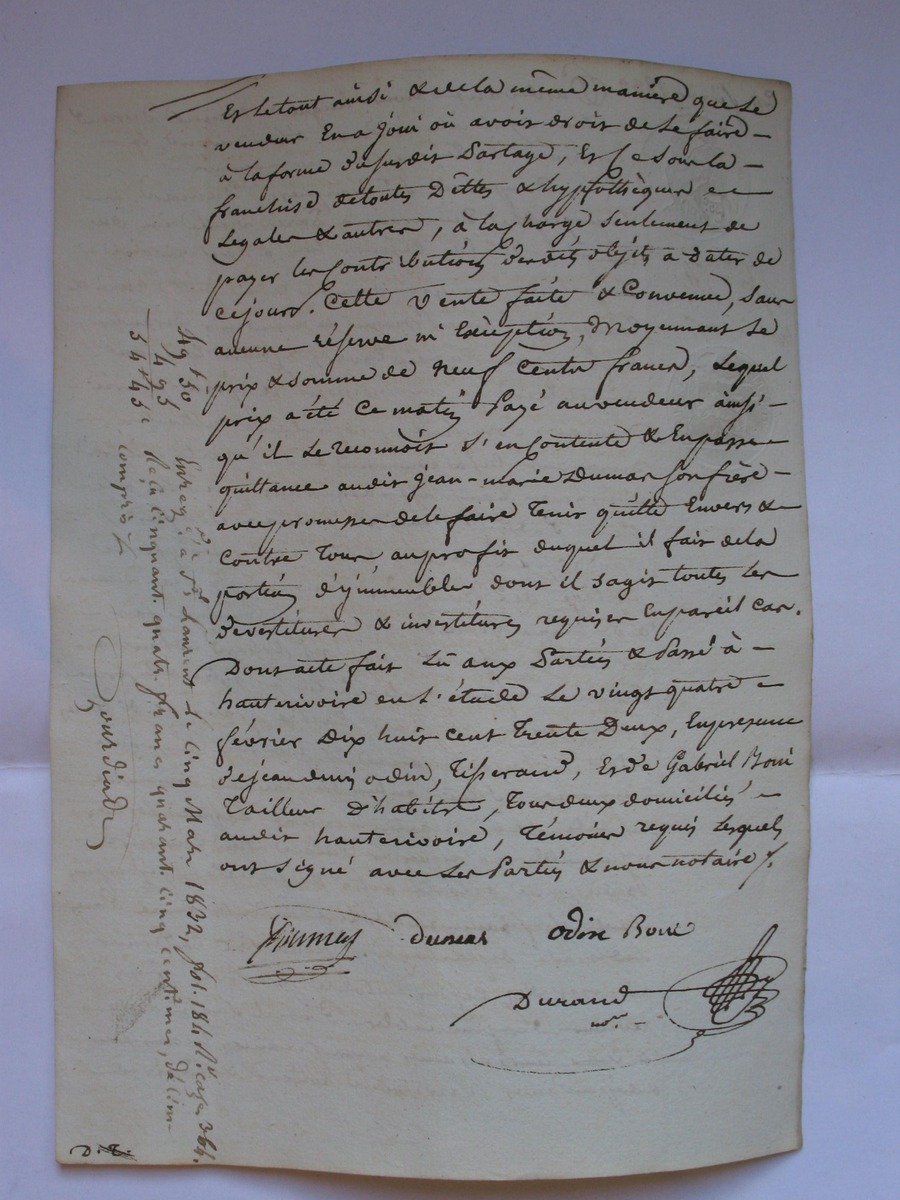 Et le tout ainsi & de la même manière que le
vendeur En a Joui où avoit droit de le faire
à la forme dususdit Partage, Et Ce sous la
franchise de toutes Dèttes & hyppothèques
Legales & autres, à la Charge seulement de
payer les Contributions desdits objets à Dater de
ce jour. Cette Vente faite & Convenue, sans
aucune réserve ni Exception, Moyennant Le
prix & somme de Neuf Cents francs, Lequel
prix a été Ce matin Payé au vendeur ainsi
qu'il Le reconnoit S'en Contente & En passe
quittance audit Jean-Marie Dumas son frère
avec promesse de le faire Tenir quitte Envers &
Contre Tous, au profit duquel il fait de la
portion d'immeubles dont il s'agit toutes Les
devestitures & investitures requises En pareil cas.
Dont acte fait Lû aux Parties & Passé à
hauterivoire en l'étude Le vingt quatre
février Dix huit cent Trente Deux, En presence
de jean denis odin, Tisserand, Et de Gabriel Boni
Tailleur D'habits, Tous deux domiciliés
audit hauterivoire, Témoins requis Lesquels
ont Signé avec Les Parties & nous notaire
Dumas Odin Boni
Durand
nore
49 f 50
4 95
54 f 45 c
Enreg. é à St Laurent le cinq Mars 1832, fol. 184 R° case 3 & 4.
Reçu cinquante quatre francs quarante cinq centimes, décime
compris
Gourdiat
D. T.